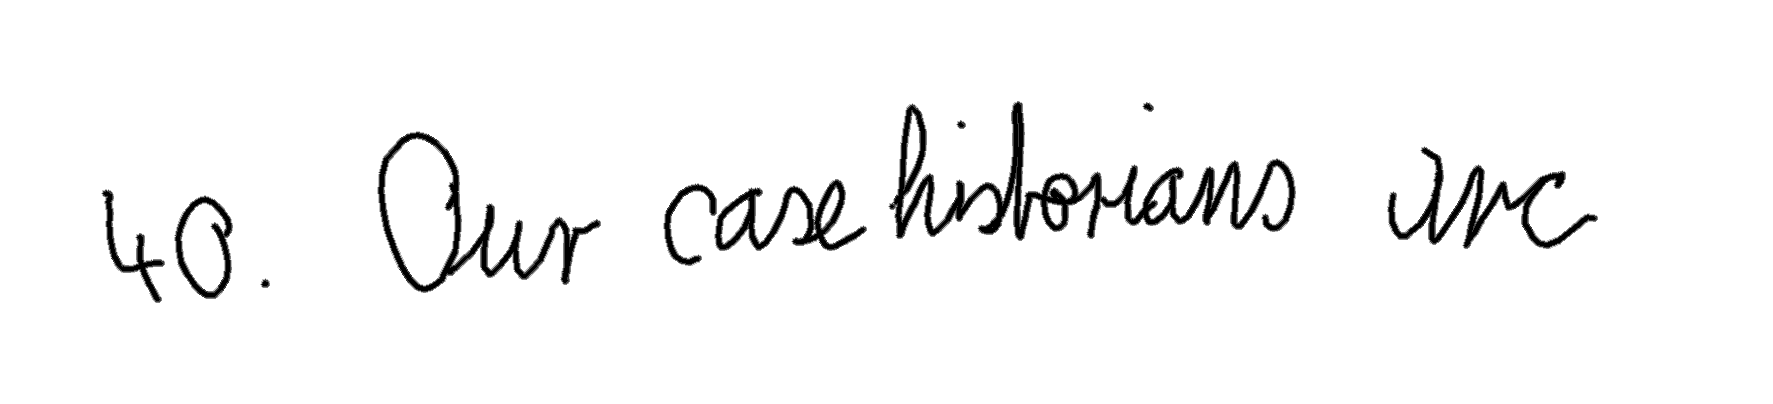 40. Our case historians are